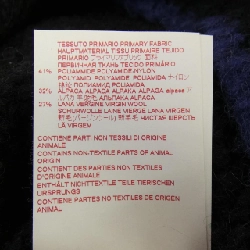 TESSUTO PRIMARIO PRIMARY FABRIC
HAUPTMATERIAL TISSU PRIMAIRE TEJIDO
PRIMARIO
ТКАНЬ TECIDO PRIMÁRIO
POLIAMIDE POLYAMIDE-NYLON
POLYAMID POLYAMIDE POLIAMIDA ナイロン
POLIAMIDA
ALPACA ALPACA ALPAKA ALPAGA alpaca
ALPAKA ALPACA
LANA VERGINE VIRGIN WOOL
SCHURWOLLE LAINE VIERGE LANA VIRGEN
ЧИСТАЯ ШЕРСТЬ
LÃ VIRGEM
CONTIENE PARTI NON TESSILI DI ORIGINE
ANIMALE
CONTAINS NON-TEXTILE PARTS OF ANIMAL
ORIGIN
CONTIENT DES PARTIES NON-TEXTILES
D'ORIGINE ANIMALE
ENTHÄLT NICHTTEXTILE TEILE TIERISCHEN
URSPRUNGS
CONTIENE PARTES NO TEXTILES DE ORIGEN
ANIMAL